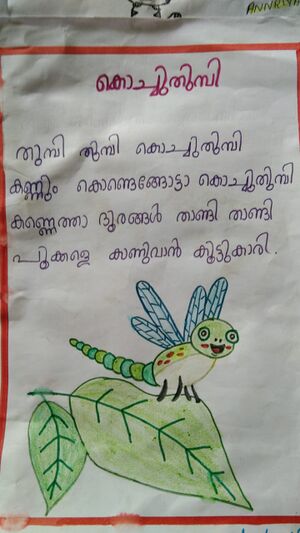 ANNRIYA
കൊച്ചുതുമ്പി
തുമ്പി തുമ്പി കൊച്ചുതുമ്പി
കണ്ണും കൊണ്ടെങ്ങോട്ടാ കൊച്ചുതുമ്പി
കണ്ണെത്താ ദൂരങ്ങൾ താണ്ടി താണ്ടി
പൂക്കളെ കാണുവാൻ കൂട്ടുകാരി.